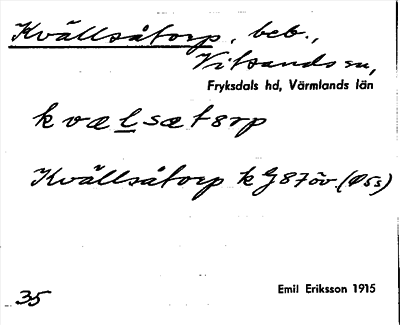 Kvällsåtorp, beb.,
Vitsands sn,
Fryksdals hd, Värmlands län
kvælsætɜrp
Kvällsåtorp k GJ87öv. (Ö5s)
35
Emil Eriksson 1915